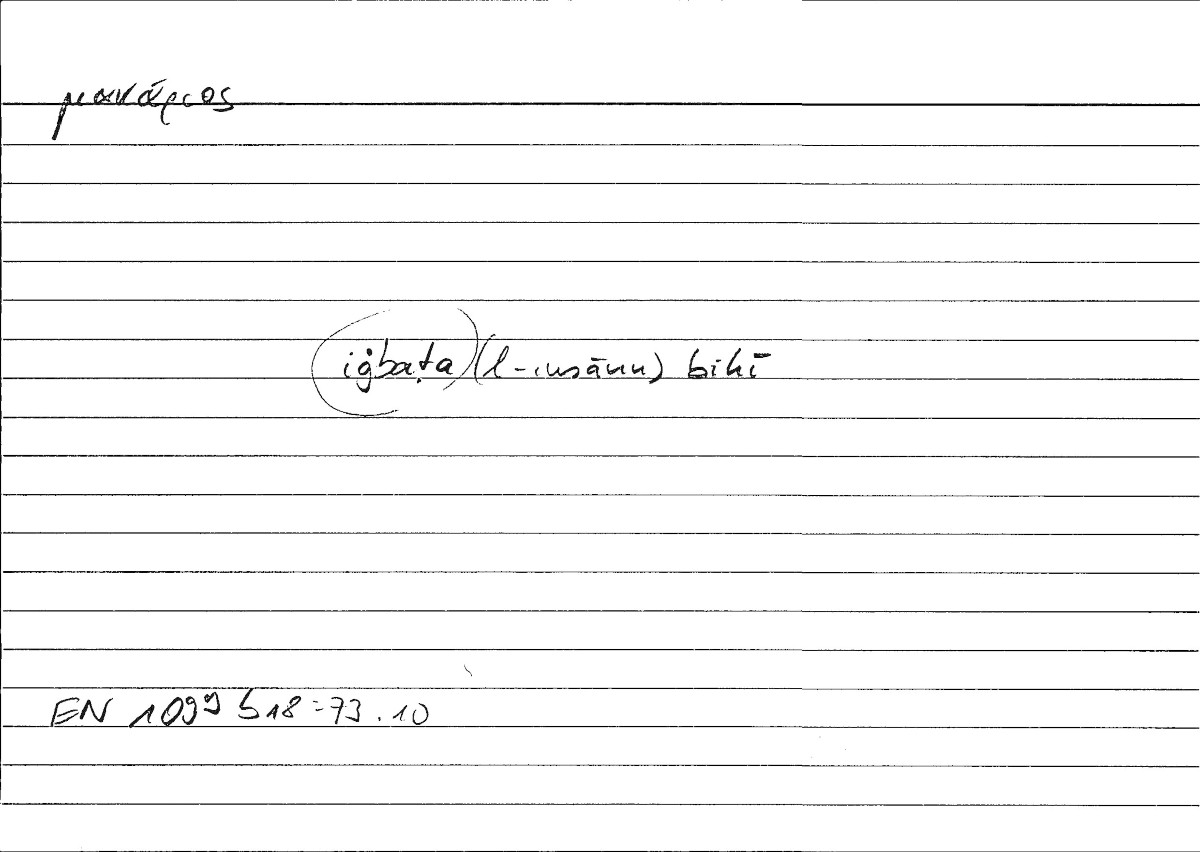 μακάριος
iġbaṭa (l-insānu) bihī
EN 1099 b18 = 73.10